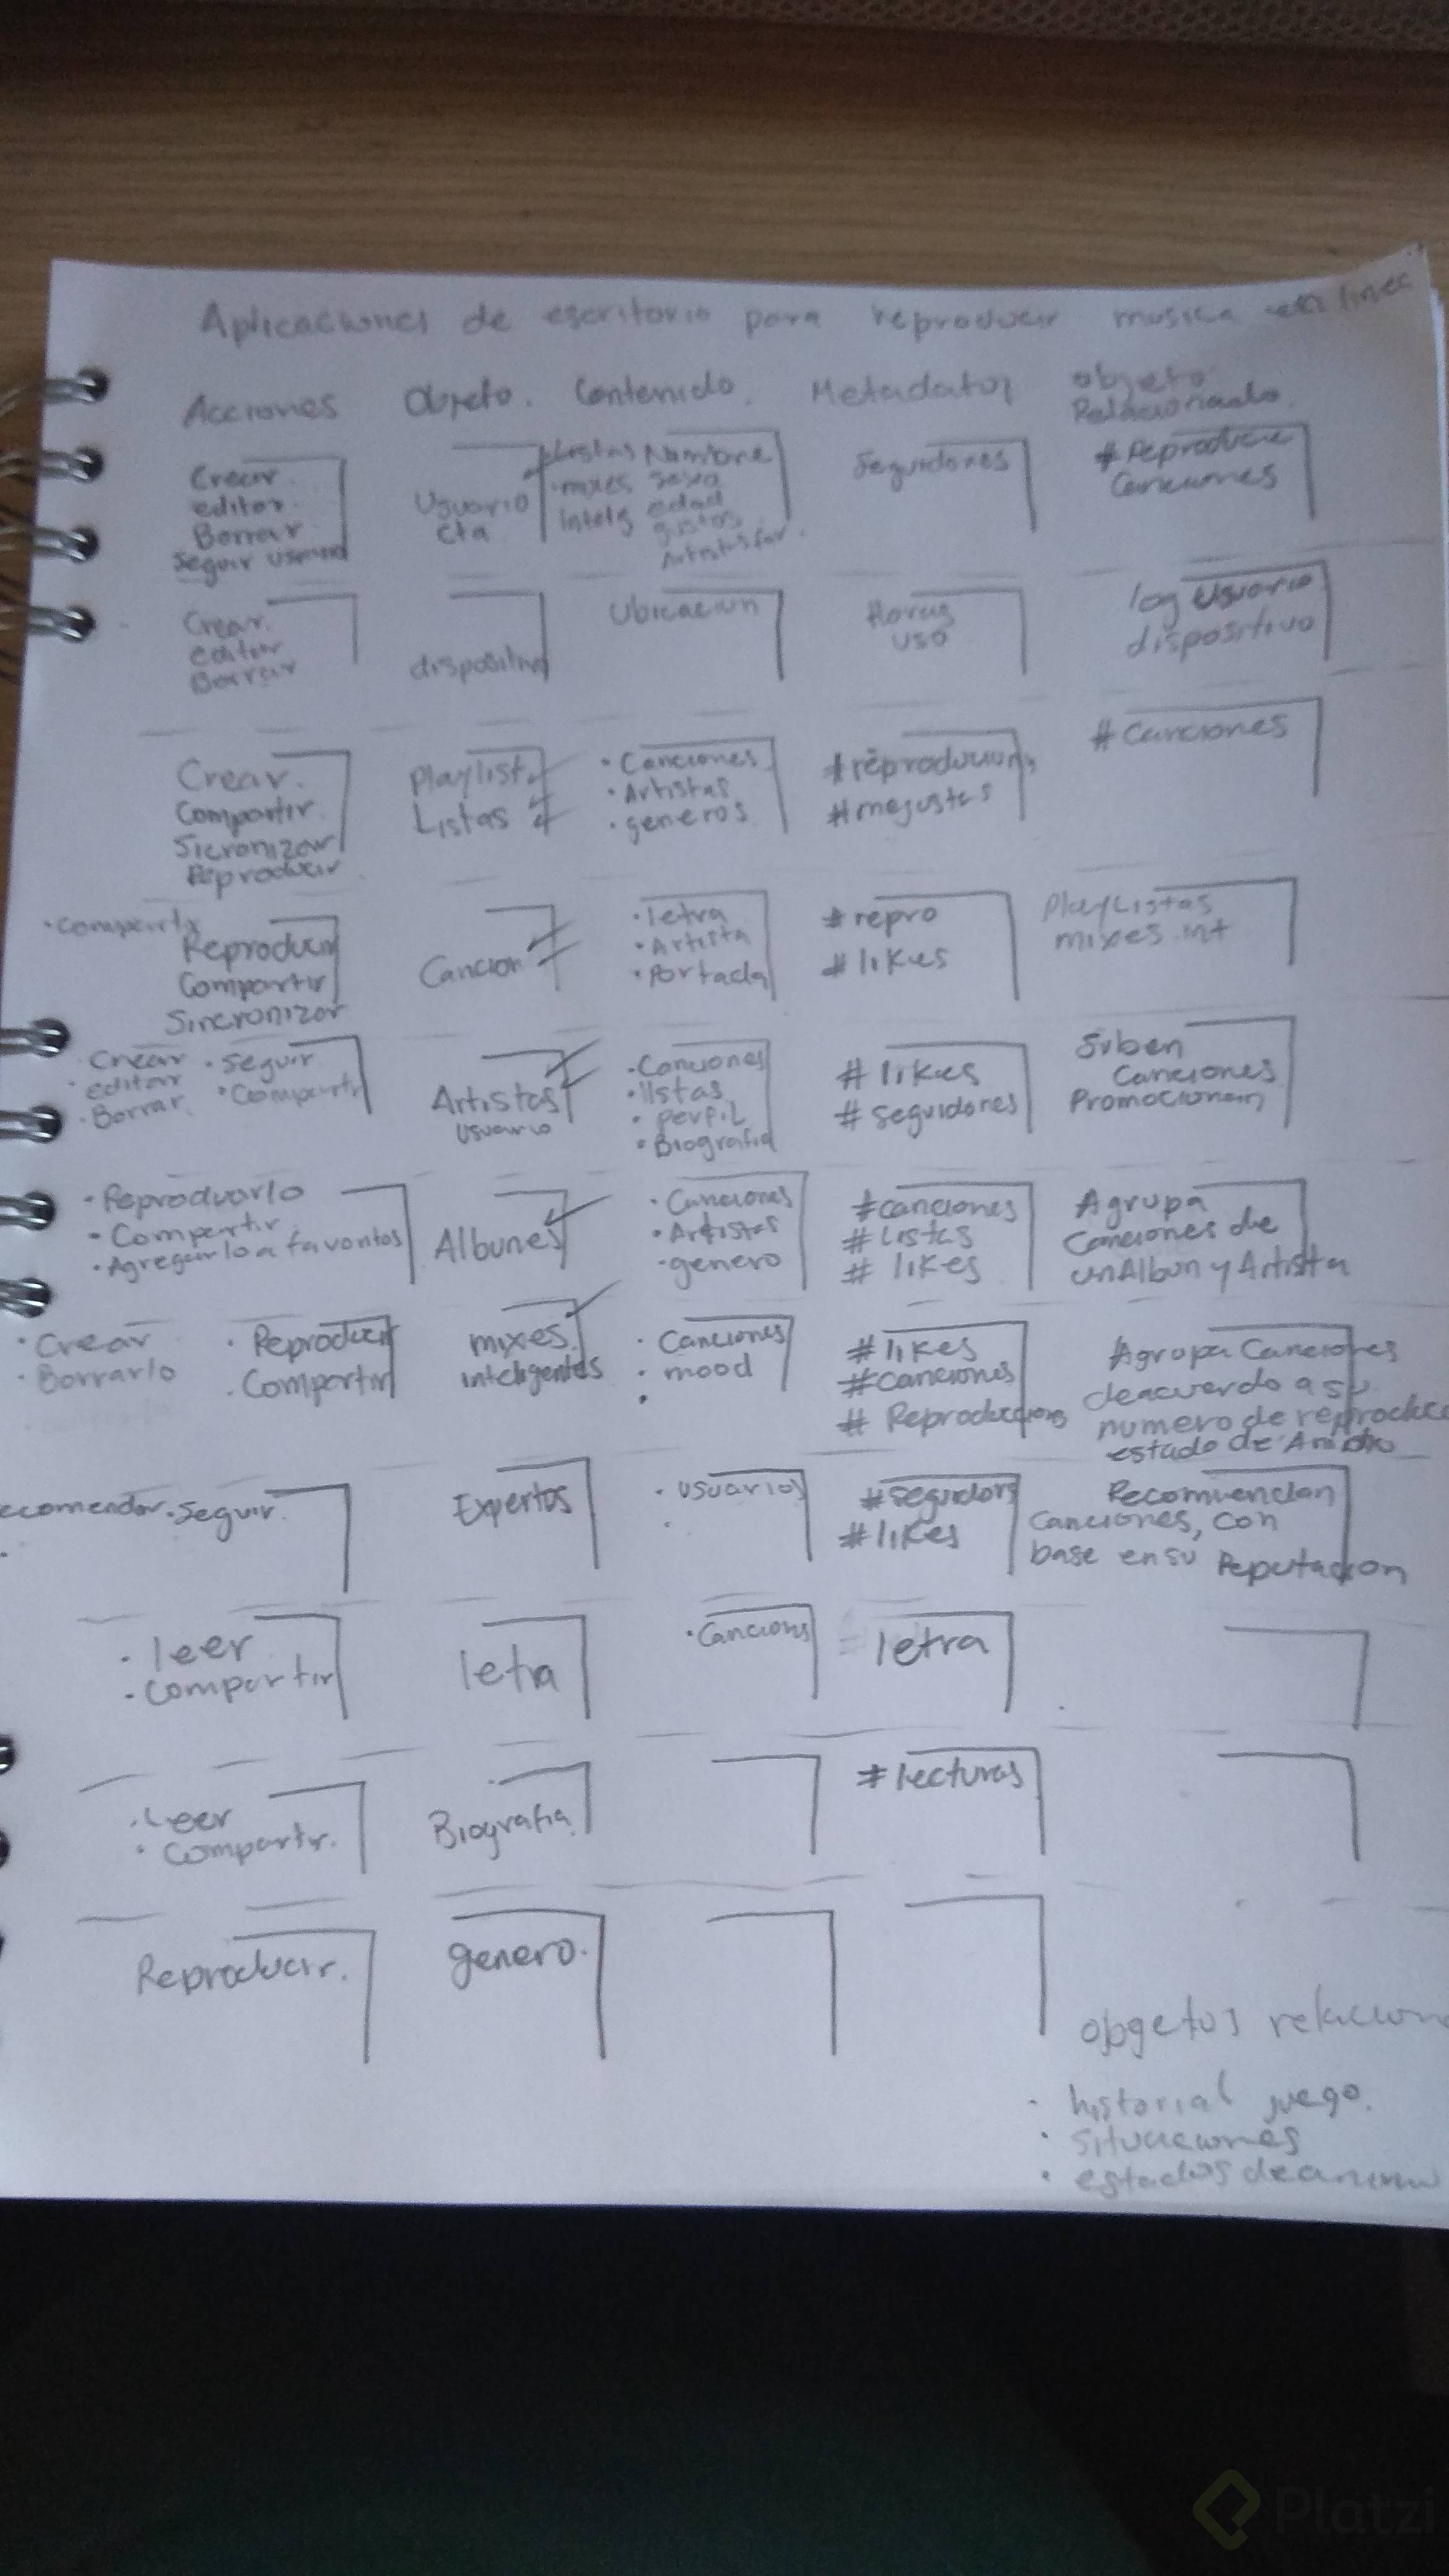 Aplicaciones de escritorio para reproducir musica en linea
Acciones Objeto. Contenido. Metadatos objeto
Relacionado.
Crear
editar.
Borrar
Seguir
Usuario
cta
Listas
mixes
intelg
Nombre
sexo
edad
gustos
Artistas fav.
Seguidores
# Reproducir
Canciones
Crear.
editar
Borrar
dispositivo
Ubicacion
Horas
uso
log Usuario
dispositivo
Crear.
Compartir.
Sicronizar
Reproducir
Playlist
Listas
• Canciones
• Artistas
• generos
#reproducions
#megustas
# Canciones
• Compartir
Reproducir
Compartir
Sincronizar
Cancion
• letra
• Artista
• Portada
# repro
# likes
PlayListas
mixes.int
• Crear
• editar
• Borrar.
• Seguir
• Compartir
Artistas
Usuario
• Canciones
• listas
• perfil
• Biografia
# likes
# seguidores
Suben
Canciones
Promocionan
• Reproducirlo
• Compartir
• Agregarlo a favoritos
Albunes
• Canciones
• Artistas
• genero
#canciones
# Listas
# likes
Agrupa
Canciones de
un Albun y Artista
• Crear
• Borrarlo
• Reproducir
• Compartir
mixes
inteligentes
• Canciones
• mood
•
#likes
#canciones
# Reproducciones
Agrupa Canciones
deacuerdo a su
numero de reproducc
estado de
ecomendar • Seguir.
Expertos
• Usuarios
#seguidors
#likes
Recomiendan
Canciones, con
base en su Reputacion
• leer
• Compartir
letra
• Cancions
letra
• Leer
• Compartir.
Biografia
# lecturas
Reproducir.
genero.
obgetos relacion
• historial juego.
• situaciones
• estados de animo
Platzi